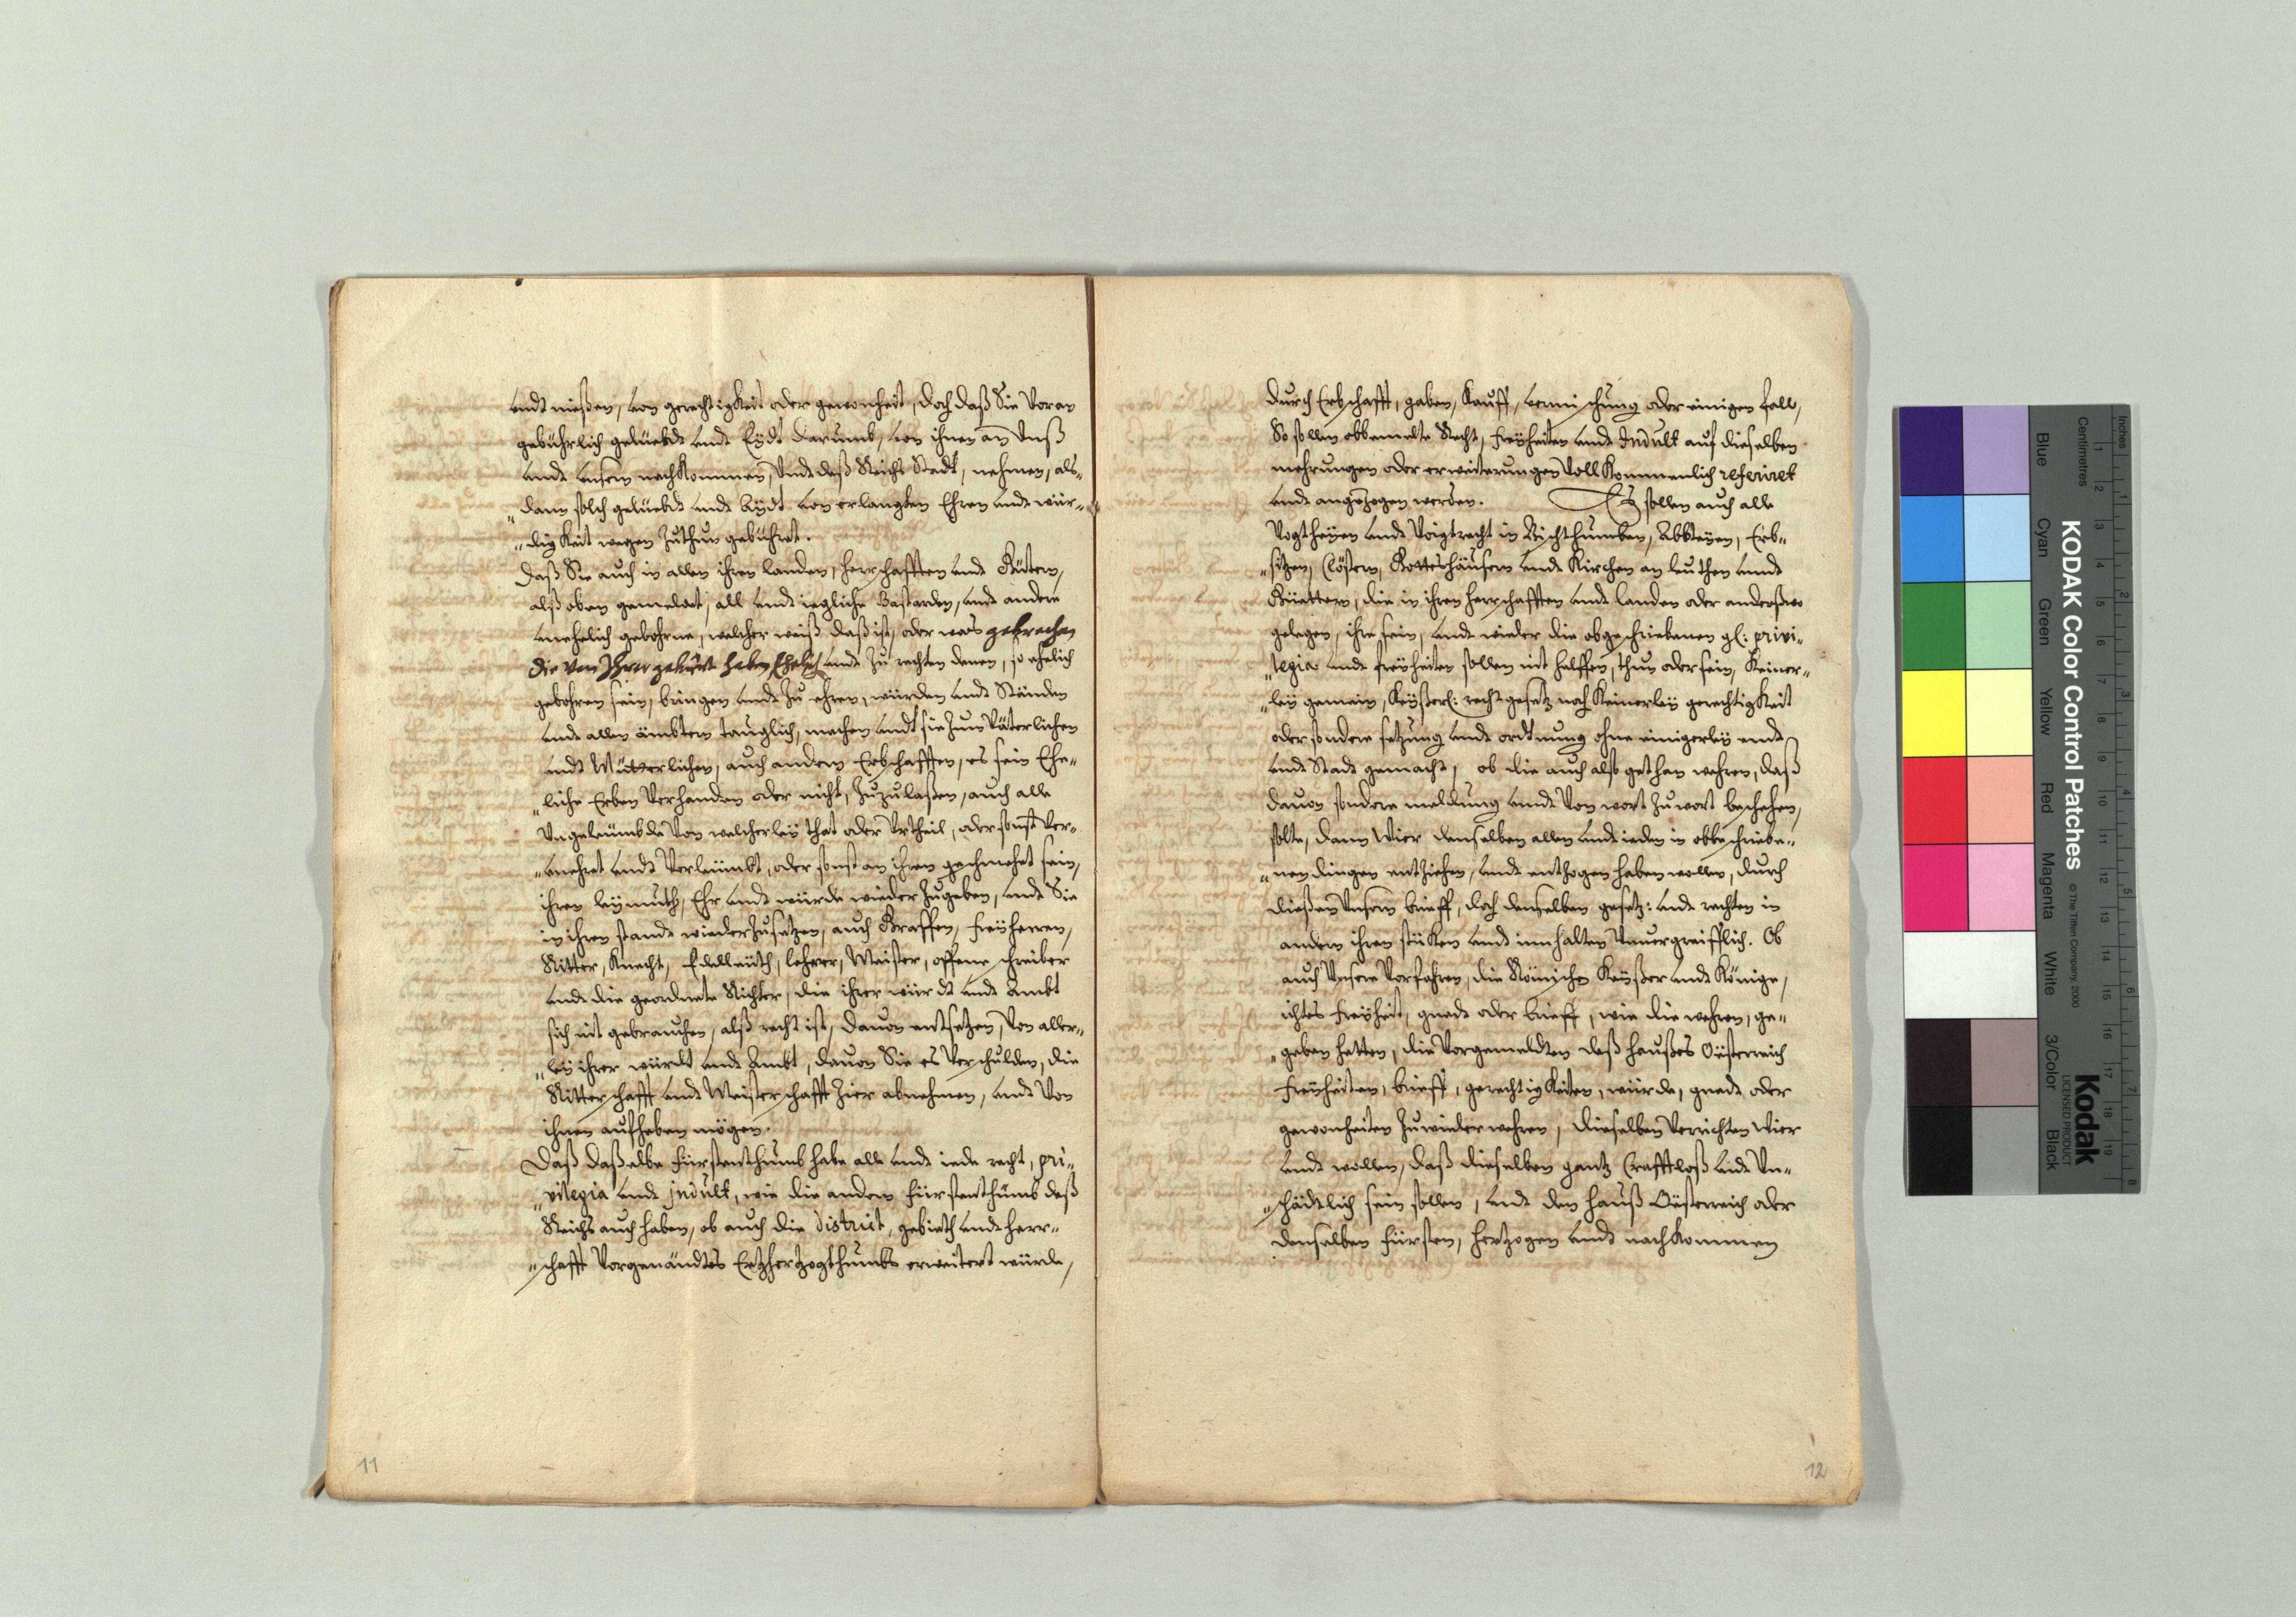 undt nießen, von gerechtigkeit oder gewonheit, doch daß Sie Voran
gebührlich gelüebdt undt Eydt darumb, von ihnen an Unß
undt unsern nachkommen, Undt deß Reichs Stadt, nehmen, als„
„dann solch gelüebdt undt Eydt von erlangten Ehren undt wür„
„digkeit wegen zuthun gebühret.
Daß Sie auch in allen ihren landen, herrschafften undt Gütern,
alß oben gemeldt, all undt iegliche Bastarden, undt andere
unehelich gebohrne, welcher weiß daß ist, oder was gebrechen
die von Ihrer geburt haben, Ehelich undt zu rechten denen, so ehelich
gebohren sein, bringen undt zu ehren, würden undt Ständen
undt allen ämbtern tauglich, machen undt sie zum Väterlichen
undt Mütterlichen, auch andern Erbschafften, es sein Ehe„
„liche Erben Verhanden oder nicht, zuzulaßen, auch alle
Ungeleümbde Von welcherley that oder Urtheil, oder sonst Ver„
„unehret undt Verleümbt, oder sonst an ihren geschmehet sein,
ihren leymuth, Ehr undt würde wieder zugeben, undt Sie
in ihren standt wiederzusetzen, auch Graffen, freyherren,
Ritter, Knecht, Edelleüth, lehrer, Meister, offene schreiber
undt die geordnete Richter, die ihrer würdt undt Ambt
sich nit gebrauchen, alß recht ist, davon entsetzen, Von aller„
„ley ihrer würdt undt Ambt, davon Sie es Verschulden, die
Ritterschafft undt Meisterschafft Zier abnehmen, undt Von
ihnen aufheben mögen.
Daß daßelbe fürstenthumb habe alle undt iede recht, pri„
„vilegia undt jndult, wie die andern fürstenthumb deß
Reichs auch haben, ob auch die district, gebieth undt herr„
„schafft Vorgenandtes Ertzhertzogthumbs erweitert würde,
11
durch Erbschafft, gaben, Kauff, vermischung oder einigen fall,
So sollen obbemelte Recht, freyheiten undt Indult auf dieselben
mehrungen oder erweiterungen Vollkommenlich referiret
undt angezogen werden. Es sollen auch alle
Vogtheyen undt Voigtrecht in Bischthumben, Abbteyen, Erb„
„sitzen, Clöstern, Gotteshäusern undt Kirchen an leuthen undt
Güettern, die in ihren herrschafften undt landen oder anderßwo
gelegen, ihre sein, undt wieder die obgeschriebenen gl: privi„
„legia undt freyheiten sollen nit helffen, thun oder sein, Keiner„
„ley gemein, Keyßerl: recht gesetz noch Keinerley gerechtigkeit
oder sondere setzung undt ordtnung ohne einigerley endt
undt Stadt gemacht, ob die auch also gethan wehren, daß
davon sondere meldung undt Von wort zu wort beschehen,
solte, dann Wier denselben allen undt ieden in obbeschriebe„
„nen dingen entziehen, undt entzogen haben wollen, durch
dießen Unsern brieff, doch denselben gesetz: undt rechten in
andern ihren stüken undt innhalten Unvergreifflich. Ob
auch Unsere Vorfahren, die Römischen Keyßer undt Könige,
ichtes freyheit, gnade oder brieff, wie die wehren, ge„
„geben hetten, die Vorgemeldten deß haußes Oesterreich
freyheiten, brieff, gerechtigkeiten, würde, gnade oder
gewonheiten zuwieder wehren, dieselben Vernichten Wier
undt wollen, daß dieselben gantz Crafftloß undt Un„
„schädtlich sein sollen, undt den hauß Oesterreich oder
denselben fürsten, hertzogen undt nachkommen
12
KODAK Color Control Patches
© The Tiffen Company, 2000
Kodak
LICENSED PRODUCT
Blue
Cyan
Green
Yellow
Red
Magenta
White
3/Color
Black
Inches
Centimetres